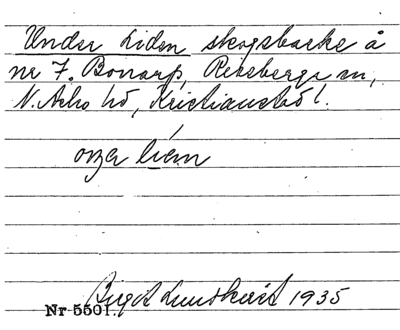 Under Liden skogsbacke å
nr 7. Bonarp, Rebbergs sn,
N. Asbo hd, Kristianstad l.
under lien
Birgit Lundkvist 1935
Nr 5501.